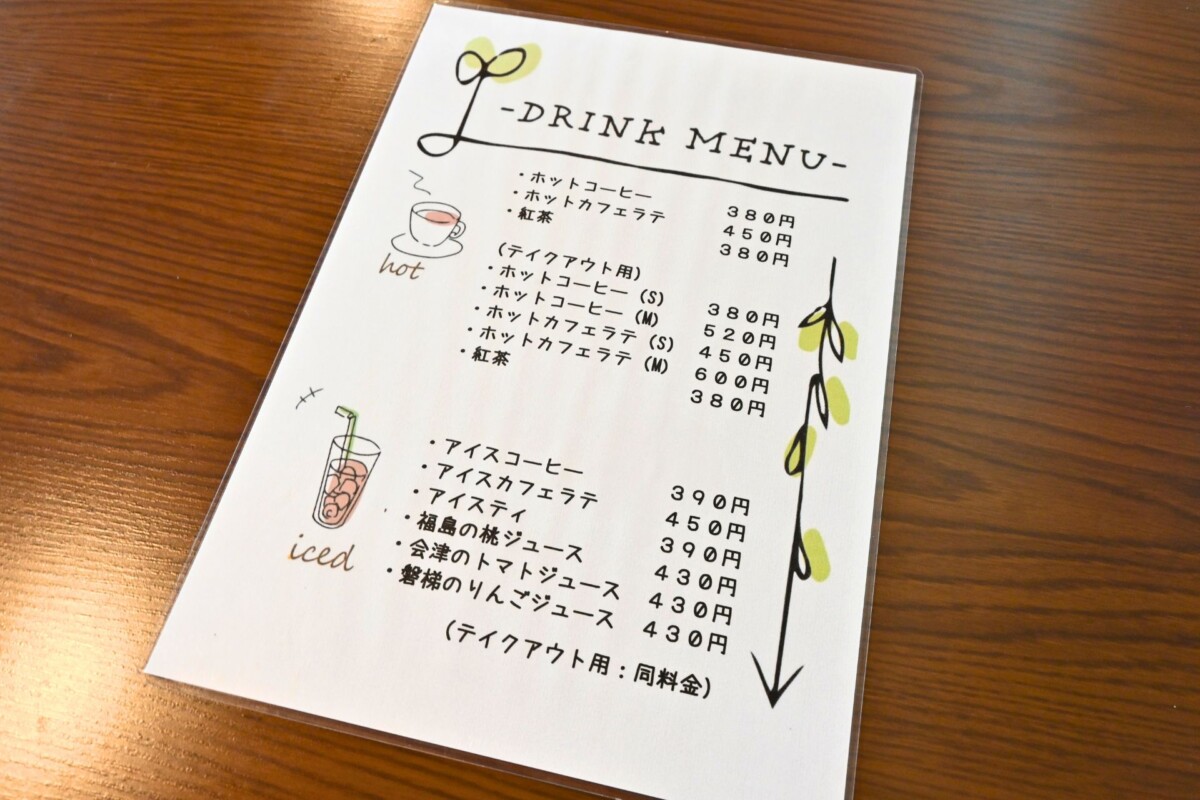 -DRINK MENU-
・ホットコーヒー 380円
・ホットカフェラテ 450円
・紅茶 380円
hot
(テイクアウト用)
・ホットコーヒー (S) 380円
・ホットコーヒー (M) 520円
・ホットカフェラテ (S) 450円
・ホットカフェラテ (M) 600円
・紅茶 380円
・アイスコーヒー 390円
・アイスカフェラテ 450円
・アイスティ 390円
・福島の桃ジュース 430円
・会津のトマトジュース 430円
・磐梯のりんごジュース 430円
iced
(テイクアウト用：同料金)